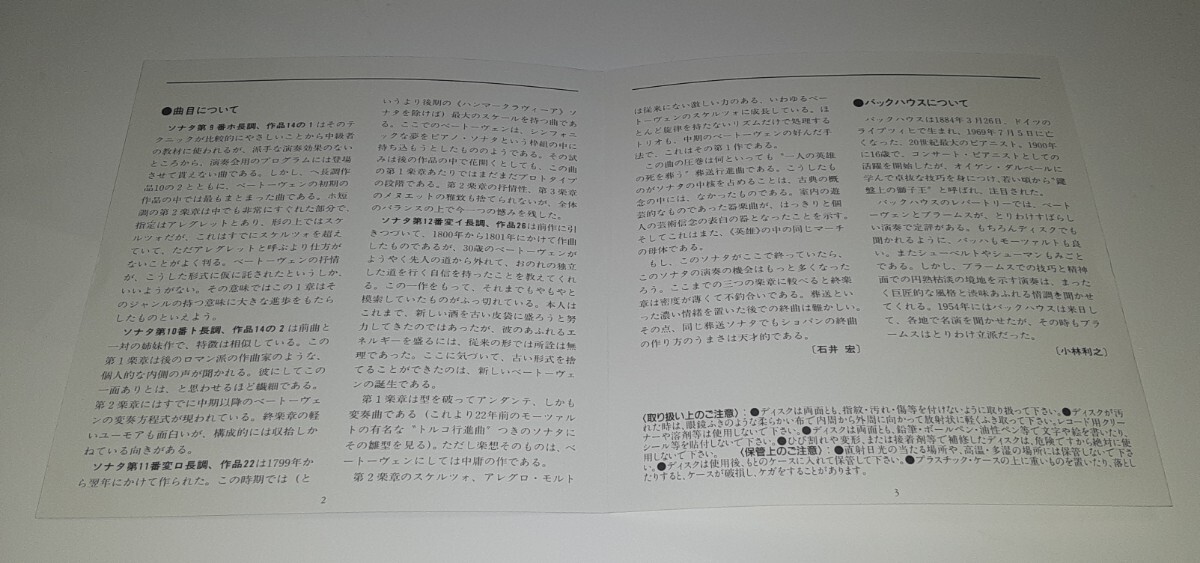 ●曲目について
ソナタ第9番ホ長調、作品14の1はそのテ
クニックが比較的にやさしいことから中級者
の教材に使われるが、派手な演奏効果のない
ところから、演奏会用のプログラムには登場
させて貰えない曲である。しかし、ヘ長調作
品10の2とともに、ベートーヴェンの初期の
作品の中では最もまとまった曲である。ホ短
調の第2楽章は中でも非常にすぐれた部分で、
指定はアレグレットとあり、形の上ではスケ
ルツォだが、これはすでにスケルツォを超え
ていて、ただアレグレットと呼ぶより仕方が
ないことがよく判る。ベートーヴェンの抒情
が、こうした形式に仮に託されたというしか、
いいようがない。その意味ではこの1章はそ
のジャンルの持つ意味に大きな進歩をもたら
したものといえよう。
ソナタ第10番ト長調、作品14の2は前曲と
一対の姉妹作で、特徴は相似している。この
第1楽章は後のロマン派の作曲家のような、
個人的な内側の声が聞かれる。彼にしてこの
一面ありとは、と思わせるほど繊細である。
第2楽章にはすでに中期以降のベートーヴェ
ンの変奏方程式が現われている。終楽章の軽
いユーモアも面白いが、構成的には収拾しか
ねている向きがある。
ソナタ第11番変ロ長調、作品22は1799年か
ら翌年にかけて作られた。この時期では(と
2
いうより後期の《ハンマークラヴィーア》ソ
ナタを除けば)最大のスケールを持つ曲であ
る。ここでのベートーヴェンは、シンフォニ
ックな夢をピアノ・ソナタという枠組の中に
持ち込もうとしたもののようである。その試
みは後の作品の中で花開くとしても、この曲
の第1楽章あたりではまだまだプロトタイプ
の段階である。第2楽章の抒情性、第3楽章
のメヌエットの雅致も捨てられないが、全体
のバランスの上で今一つの憾みを残した。
ソナタ第12番変イ長調、作品26は前作に引
きつづいて、1800年から1801年にかけて作曲
したものであるが、30歳のベートーヴェンが
ようやく先人の道から外れて、おのれの独立
した道を行く自信を持ったことを教えてくれ
る。この一作をもって、それまでもやもやと
模索していたものがふっ切れている。本人は
これまで、新しい酒を古い皮袋に盛ろうと努
力してきたのではあったが、彼のあふれるエ
ネルギーを盛るには、従来の形では所詮は無
理であった。ここに気づいて、古い形式を捨
てることができたのは、新しいベートーヴェ
ンの誕生である。
第1楽章は型を破ってアンダンテ、しかも
変奏曲である(これより22年前のモーツァル
トの有名な“トルコ行進曲”つきのソナタに
その雛型を見る)。ただし楽想そのものは、ベ
ートーヴェンにしては中庸の作である。
第2楽章のスケルツォ、アレグロ・モルト
は従来にない激しい力のある、いわゆるベー
トーヴェンのスケルツォに成長している。ほ
とんど旋律を持たないリズムだけで処理する
トリオも、中期のベートーヴェンの好んだ手
法で、これはその第1作である。
この曲の圧巻は何といっても“一人の英雄
の死を葬う”葬送行進曲である。こうしたも
のがソナタの中核を占めることは、古典の概
念の中には、なかったものである。室内の遊
芸的なものであった器楽曲が、はっきりと個
人の芸術信念の表白の器となったことを示す。
そしてこれはまた、《英雄》の中の同じマーチ
の母体である。
もし、このソナタがここで終っていたら、
このソナタの演奏の機会はもっと多くなった
ろう。ここまでの三つの楽章に較べると終楽
章は密度が薄くて不釣合いである。葬送とい
った濃い情緒を置いた後での終曲は難かしい。
その点、同じ葬送ソナタでもショパンの終曲
の作り方のうまさは天才的である。
〔石井 宏〕
●バックハウスについて
バックハウスは1884年3月26日、ドイツの
ライプツィヒで生まれ、1969年7月5日に亡
くなった、20世紀最大のピアニスト。1900年
に16歳で、コンサート・ピアニストとしての
活躍を開始したが、オイゲン・ダルベールに
学んで卓抜な技巧を身につけ、若い頃から“鍵
盤上の獅子王”と呼ばれ、注目された。
バックハウスのレパートリーでは、ベート
ーヴェンとブラームスが、とりわけすばらし
い演奏で定評がある。もちろんディスクでも
聞かれるように、バッハもモーツァルトも良
い。またシューベルトやシューマンもみごと
である。しかし、ブラームスでの技巧と精神
面での円熟枯淡の境地を示す演奏は、まった
く巨匠的な風格と渋味あふれる情調を聞かせ
てくれる。1954年にはバックハウスは来日し
て、各地で名演を聞かせたが、その時もブラ
ームスはとりわけ立派だった。
〔小林利之〕
〈取り扱い上のご注意〉:●ディスクは両面とも、指紋・汚れ・傷等を付けないように取り扱って下さい。●ディスクが汚
れた時は、眼鏡ふきのような柔らかい布で内周から外周に向かって放射状に軽くふき取って下さい。レコード用クリー
ナーや溶剤等は使用しないで下さい。●ディスクは両面とも、鉛筆・ボールペン・油性ペン等で文字や絵を書いたり、
シール等を貼付しないで下さい。●ひび割れや変形、または接着剤等で補修したディスクは、危険ですから絶対に使
用しないで下さい。〈保管上のご注意〉:●直射日光の当たる場所や、高温・多湿の場所には保管しないで下さ
い。●ディスクは使用後、もとのケースに入れて保管して下さい。●プラスチック・ケースの上に重いものを置いたり、落とし
たりすると、ケースが破損し、ケガをすることがあります。
3